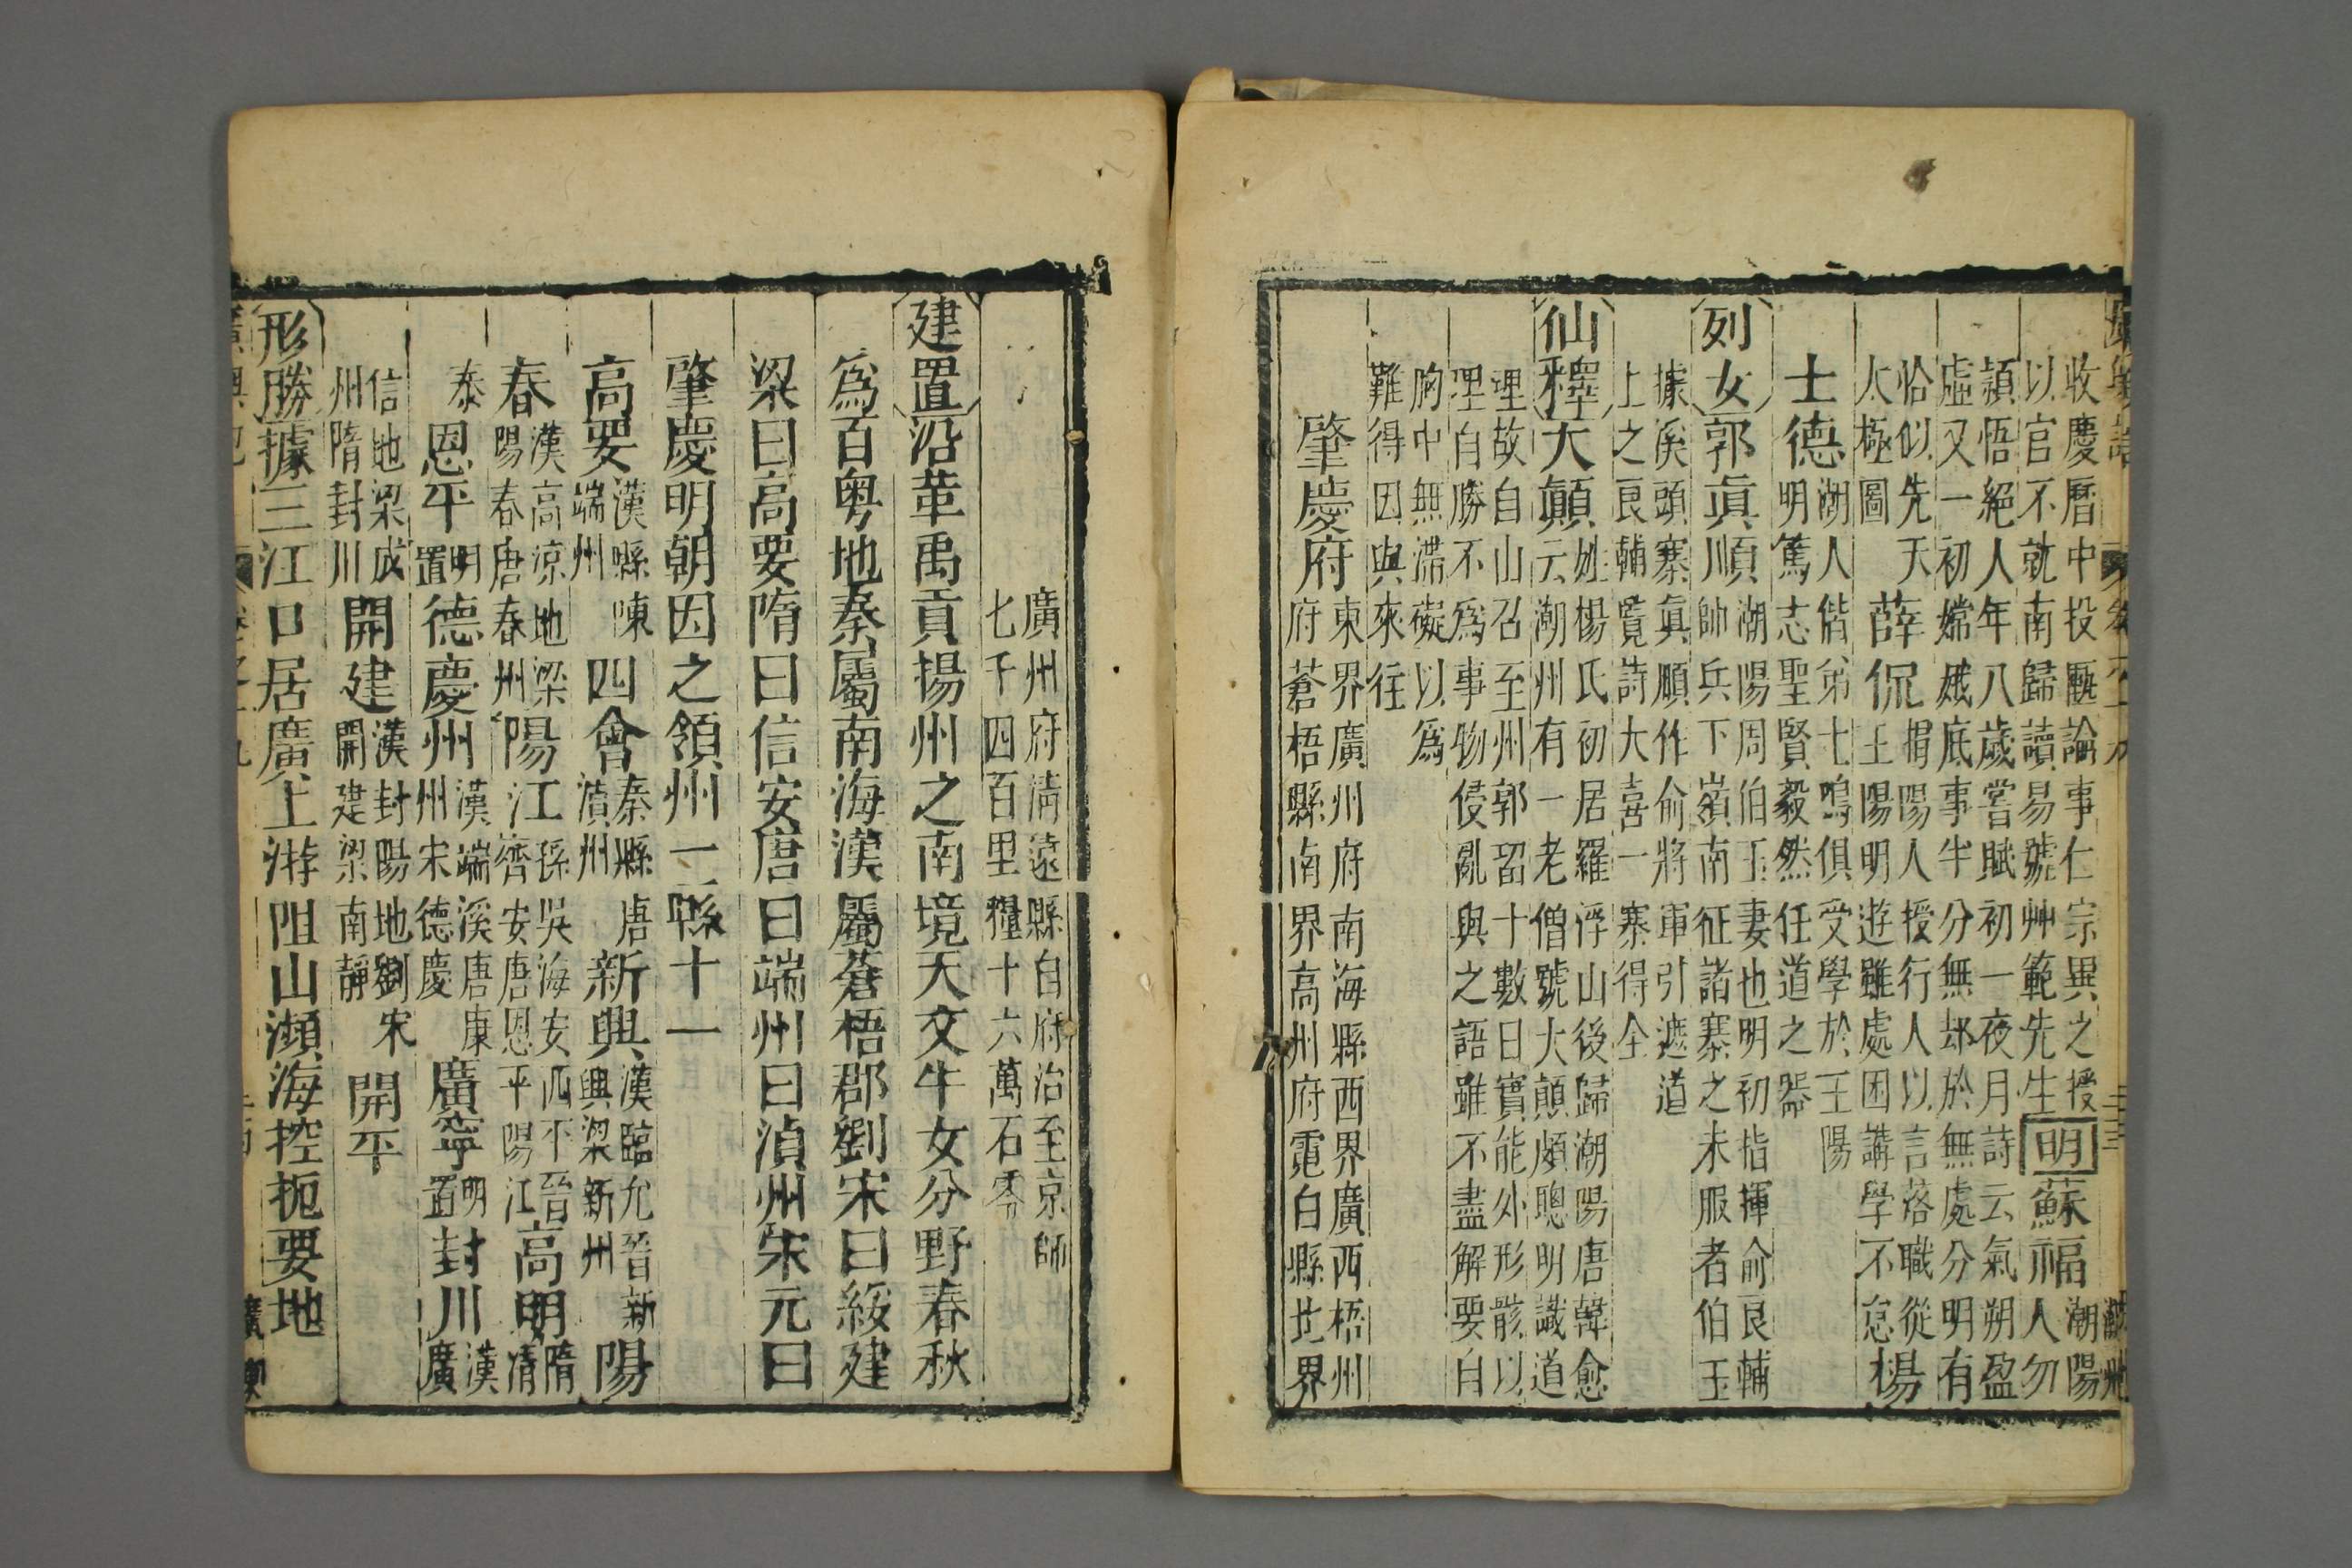 收慶曆中投匭論事仁宗異之授
以官不就南歸讀易號艸範先生明蘇福潮陽人勿
穎悟絕人年八歲嘗賦初一夜月詩云氣朔盈
虛又一初嫦娥底事半分無却於無處分明有
恰似先天
太極圖薛侃揭陽人授行人以言落職從
王陽明遊雖處困講學不怠楊
士德潮人偕弟士鳴俱受學於王陽
明篤志聖賢毅然任道之器
列女郭真順潮陽周伯玉妻也明初指揮俞良輔
帥兵下嶺南征諸寨之未服者伯玉
據溪頭寨真順作俞將軍引遮道
上之良輔覽詩大喜一寨得全
仙釋大顛姓楊氏初居羅浮山後歸潮陽唐韓愈
云潮州有一老僧號大顛頗聰明識道
理故自山召至州郭留十數日實能外形骸以
理自勝不為事物侵亂與之語雖不盡解要自
胸中無滯礙以為
難得因與來往
肇慶府東界廣州府南海縣西界廣西梧州
府蒼梧縣南界高州府電白縣北界
廣州府清遠縣自府治至京師
七千四百里糧十六萬石零
建置沿革禹貢揚州之南境天文牛女分野春秋
為百粤地秦屬南海漢屬蒼梧郡劉宋曰綏建
梁曰高要隋曰信安唐曰端州曰湞州宋元曰
肇慶明朝因之領州一縣十一
高要漢縣陳端州四會秦縣唐湞州新興漢臨允晉新興梁新州陽
春漢高凉地梁陽春唐春州陽江孫吳海安西平晉齊安唐恩平陽江高明隋清
泰恩平明置德慶州漢端溪唐康州宋德慶廣寧明置封川漢廣
信地梁成州隋封川開建漢封陽地劉宋開建梁南靜開平
形勝據三江口居廣上游阻山瀕海控扼要地